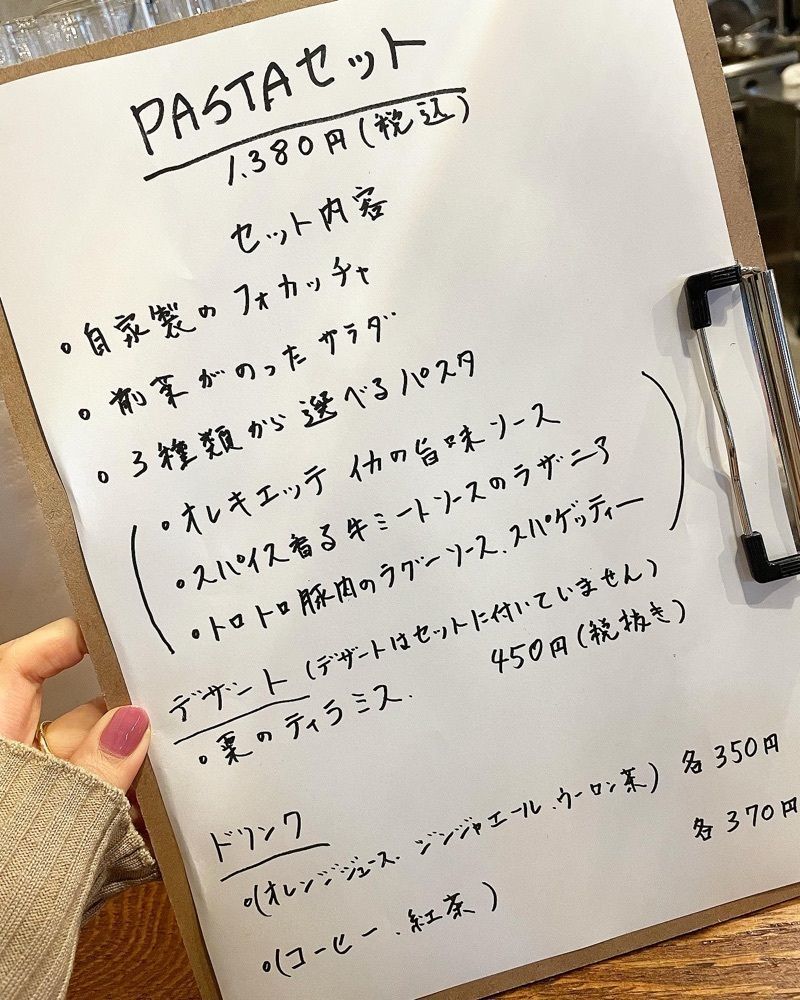 PASTAセット
1.380円(税込)
セット内容
・自家製のフォカッチャ
・前菜がのったサラダ
・3種類から選べるパスタ
・オレキエッテ イカの旨味ソース
・スパイス香る牛ミートソースのラザニア
・トロトロ豚肉のラグーソース、スパゲッティー
デザート (デザートはセットに付いていません)
・栗のティラミス. 450円(税抜き)
ドリンク
・(オレンジジュース、ジンジャエール、ウーロン茶) 各350円
・(コーヒー、紅茶) 各370円